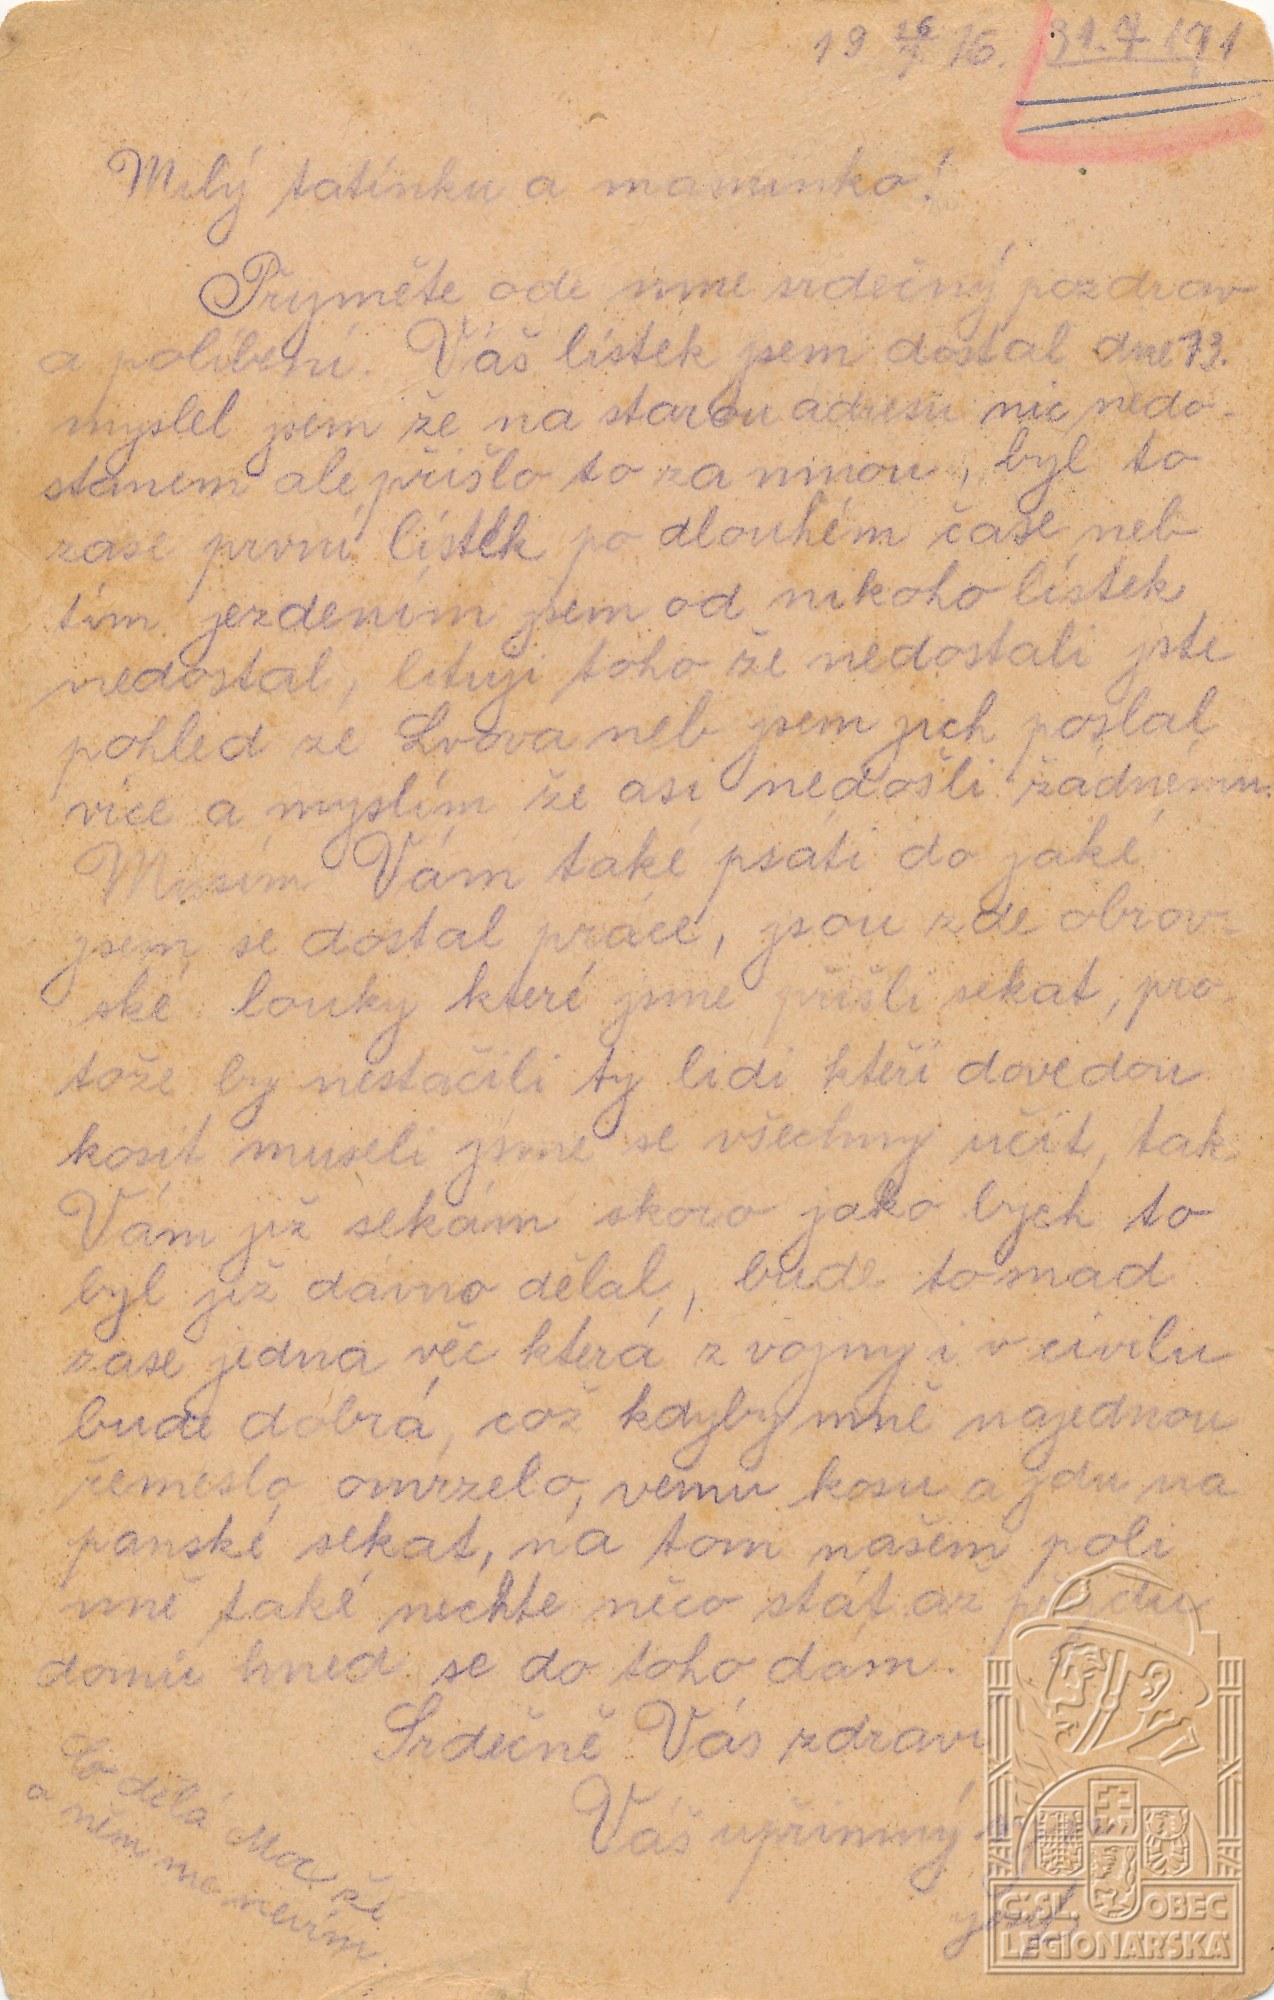 19 16/7 16. 31.7 191
Milý tatínku a maminko!
Přijměte ode mne srdečný pozdrav
a políbení. Váš lístek jsem dostal dne 13.
myslel jsem že na starou adresu nic nedo-
stanem ale přišlo to za mnou, byl to
zase první lístek po dlouhém čase neb
tím ježdením jsem od nikoho lístek
nedostal, lituji toho že nedostali jste
pohled ze Lvova neb jsem jich poslal
více a myslím že asi nedošli žádnému.
Musím Vám také psáti do jaké
jsem se dostal práce, jsou zde obrov-
ské louky které jsme přišli sekat, pro-
tože by nestačili ty lidi kteří dovedou
kosit museli jsme se všechny učit, tak
Vám již sekám skoro jako bych to
byl již dávno dělal, bude to snad
zase jedna věc která z vojny i v civilu
bude dobrá, což kdyby mně najednou
řemeslo omrzelo, vemu kosu a jdu na
panské sekat, na tom našem poli
mně také nechte něco stát až přijdu
domů hned se do toho dám.
Srdečně Vás zdraví
Váš upřímný syn
Josef
Co dělá že
o něm nic nevím.
ČSL. OBEC
LEGIONÁŘSKÁ